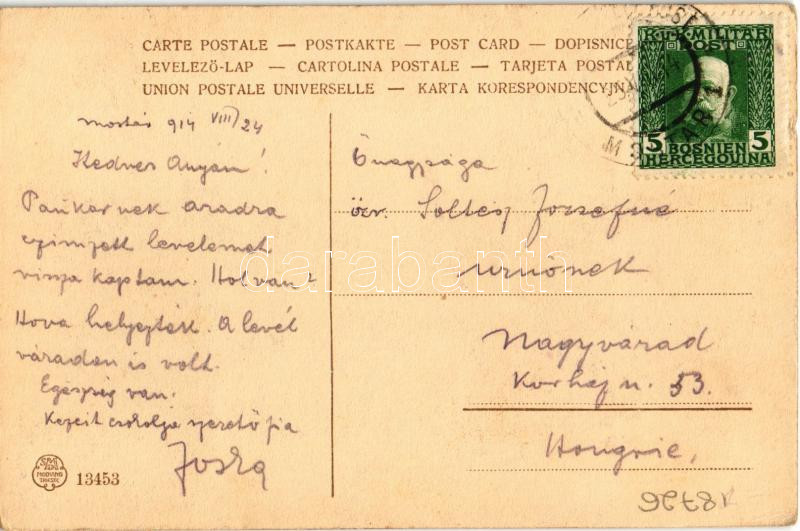 CARTE POSTALE — POSTKAKTE — POST CARD — DOPISNICE
LEVELEZŐ-LAP — CARTOLINA POSTALE — TARJETA POSTAL
UNION POSTALE UNIVERSELLE — KARTA KORESPONDENCYJNA
K.u.K. MILITÄR
POST
5 BOSNIEN 5
HERCEGOVINA
914 VIII/24
Kedves Anyám!
Paukernek Aradra
czimzett levelemet
vissza kaptam. Hol van?
Hova helyezték. A levél
váradon is volt.
Egészség van.
Kezeit csókolja szerető fia
Joska
Őnagysága
özv. Soltész Józsefné
urnőnek
Nagyvárad
Korház u. 53.
Hongrie,
darabanth
13453